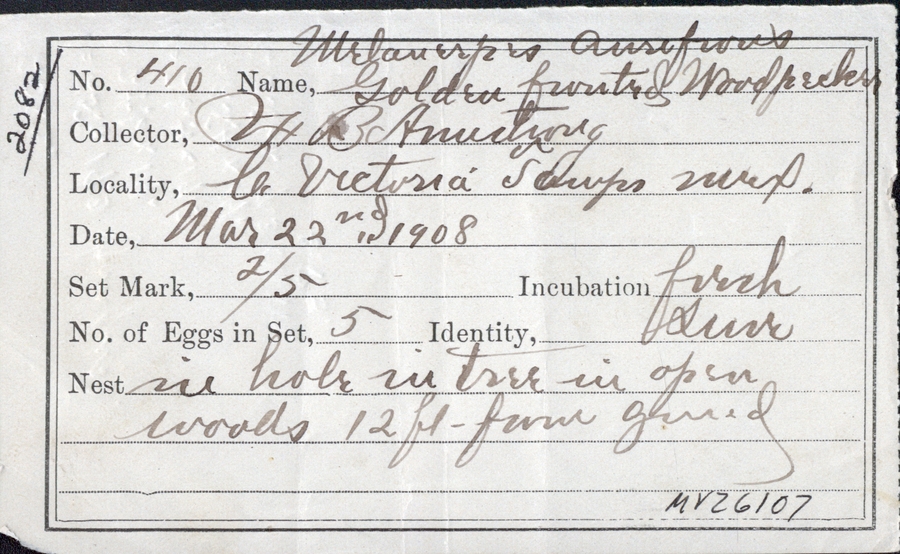 2082
Melanerpes aurifrons
No. 410 Name, Golden fronted Woodpecker
Collector, F B Armstrong
Locality, Ca Victoria Tamps Mex.
Date, Mar 22nd 1908
Set Mark, 2/5 Incubation fresh
No. of Eggs in Set, 5 Identity, Sure
Nest in hole in tree in open
woods 12 ft - from ground
MVZ6107